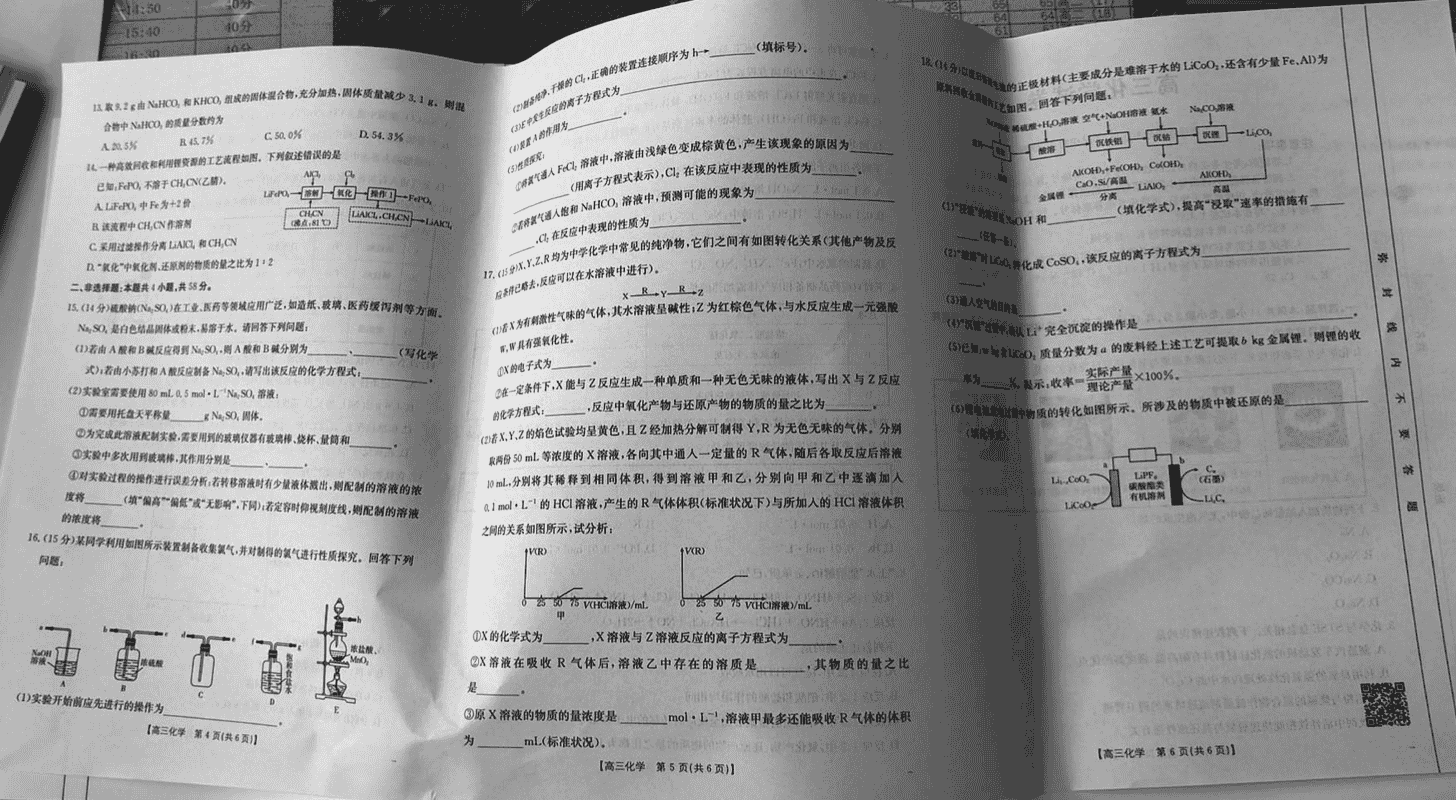 -14:50
40分
-15:40
40分
-16:30
40分
13.取9.2g由NaHCO₃和KHCO₃组成的固体混合物,充分加热,固体质量减少3.1g。则混
合物中NaHCO₃的质量分数约为
A.20.5% B.45.7% C.50.0% D.54.3%
14.一种高效回收和利用锂资源的工艺流程如图。下列叙述错误的是
已知:FePO₄不溶于CH₃CN(乙腈)。
A.LiFePO₄中Fe为+2价
B.该流程中CH₃CN作溶剂
C.采用过滤操作分离LiAlCl₄和CH₃CN
D.“氧化”中氧化剂、还原剂的物质的量之比为1:2
AlCl₃ Cl₂
LiFePO₄ 溶解 氧化 操作1 FePO₄
CH₃CN
(沸点:81℃)
LiAlCl₄、CH₃CN LiAlCl₄
二、非选择题:本题共4小题,共58分。
15.(14分)硫酸钠(Na₂SO₄)在工业、医药等领域应用广泛,如造纸、玻璃、医药缓泻剂等方面。
Na₂SO₄是白色结晶固体或粉末,易溶于水。请回答下列问题:
(1)若由A酸和B碱反应得到Na₂SO₄,则A酸和B碱分别为______、______(写化学
式);若由小苏打和A酸反应制备Na₂SO₄,请写出该反应的化学方程式:__________。
(2)实验室需要使用80 mL 0.5 mol·L⁻¹Na₂SO₄溶液:
①需要用托盘天平称量______g Na₂SO₄固体。
②为完成此溶液配制实验,需要用到的玻璃仪器有玻璃棒、烧杯、量筒和______。
③实验中多次用到玻璃棒,其作用分别是______、______。
④对实验过程的操作进行误差分析:若转移溶液时有少量液体溅出,则配制的溶液的浓
度将______(填“偏高”“偏低”或“无影响”,下同);若定容时仰视刻度线,则配制的溶液
的浓度将______。
16.(15分)某同学利用如图所示装置制备收集氯气,并对制得的氯气进行性质探究。回答下列
问题:
a b c d e f g h
NaOH
溶液
浓硫酸
饱和食盐水
浓盐酸、
MnO₂
A B C D E
(1)实验开始前应先进行的操作为__________。
【高三化学 第4页(共6页)】
(2)制备纯净、干燥的Cl₂,正确的装置连接顺序为h→______(填标号)。
(3)E中发生反应的离子方程式为__________。
(4)装置A的作用为__________。
(5)性质探究:
①将氯气通入FeCl₂溶液中,溶液由浅绿色变成棕黄色,产生该现象的原因为______
______(用离子方程式表示),Cl₂在该反应中表现的性质为______。
②若将氯气通入饱和NaHCO₃溶液中,预测可能的现象为__________
______,Cl₂在反应中表现的性质为__________。
17.(15分)X、Y、Z、R均为中学化学中常见的纯净物,它们之间有如图转化关系(其他产物及反
应条件已略去,反应可以在水溶液中进行)。
X R→ Y R→ Z
(1)若X为有刺激性气味的气体,其水溶液呈碱性;Z为红棕色气体,与水反应生成一元强酸
W,W具有强氧化性。
①X的电子式为______。
②在一定条件下,X能与Z反应生成一种单质和一种无色无味的液体,写出X与Z反应
的化学方程式:______,反应中氧化产物与还原产物的物质的量之比为______。
(2)若X、Y、Z的焰色试验均呈黄色,且Z经加热分解可制得Y,R为无色无味的气体。分别
取两份50 mL等浓度的X溶液,各向其中通入一定量的R气体,随后各取反应后溶液
10 mL,分别将其稀释到相同体积,得到溶液甲和乙,分别向甲和乙中逐滴加入
0.1 mol·L⁻¹的HCl溶液,产生的R气体体积(标准状况下)与所加入的HCl溶液体积
之间的关系如图所示,试分析:
V(R) V(R)
0 25 50 75 V(HCl溶液)/mL 0 25 50 75 V(HCl溶液)/mL
甲 乙
①X的化学式为______,X溶液与Z溶液反应的离子方程式为______。
②X溶液在吸收R气体后,溶液乙中存在的溶质是______,其物质的量之比
是______。
③原X溶液的物质的量浓度是______mol·L⁻¹,溶液甲最多还能吸收R气体的体积
为______mL(标准状况)。
【高三化学 第5页(共6页)】
18.(14分)以废旧锂电池的正极材料(主要成分是难溶于水的LiCoO₂,还含有少量Fe、Al)为
原料回收金属锂的工艺如图。回答下列问题:
稀硫酸+H₂O₂溶液 空气+NaOH溶液 氨水 Na₂CO₃溶液
酸溶 沉铁铝 沉钴 沉锂 Li₂CO₃
Al(OH)₃+Fe(OH)₃ Co(OH)₂
金属锂 CaO、Si/高温 分离 LiAlO₂ Al(OH)₃ 高温
(1)
NaOH和______(填化学式),提高“浸取”速率的措施有______
______(任答一条)。
(2)“酸溶”时LiCoO₂转化成CoSO₄,该反应的离子方程式为__________
______。
(3)通入空气的目的是__________。
(4)“沉锂”过程中,确认Li⁺完全沉淀的操作是__________。
(5)已知:w kg含LiCoO₂质量分数为a的废料经上述工艺可提取b kg金属锂。则锂的收
率为______%。提示:收率=实际产量/理论产量×100%。
(6)
中物质的转化如图所示。所涉及的物质中被还原的是______
(填化学式)。
a b
Li₁₋ₓCoO₂
LiCoO₂
LiPF₆
碳酸酯类
有机溶剂
C₆
(石墨)
LiₓC₆
【高三化学 第6页(共6页)】
密 封 线 内 不 要 答 题